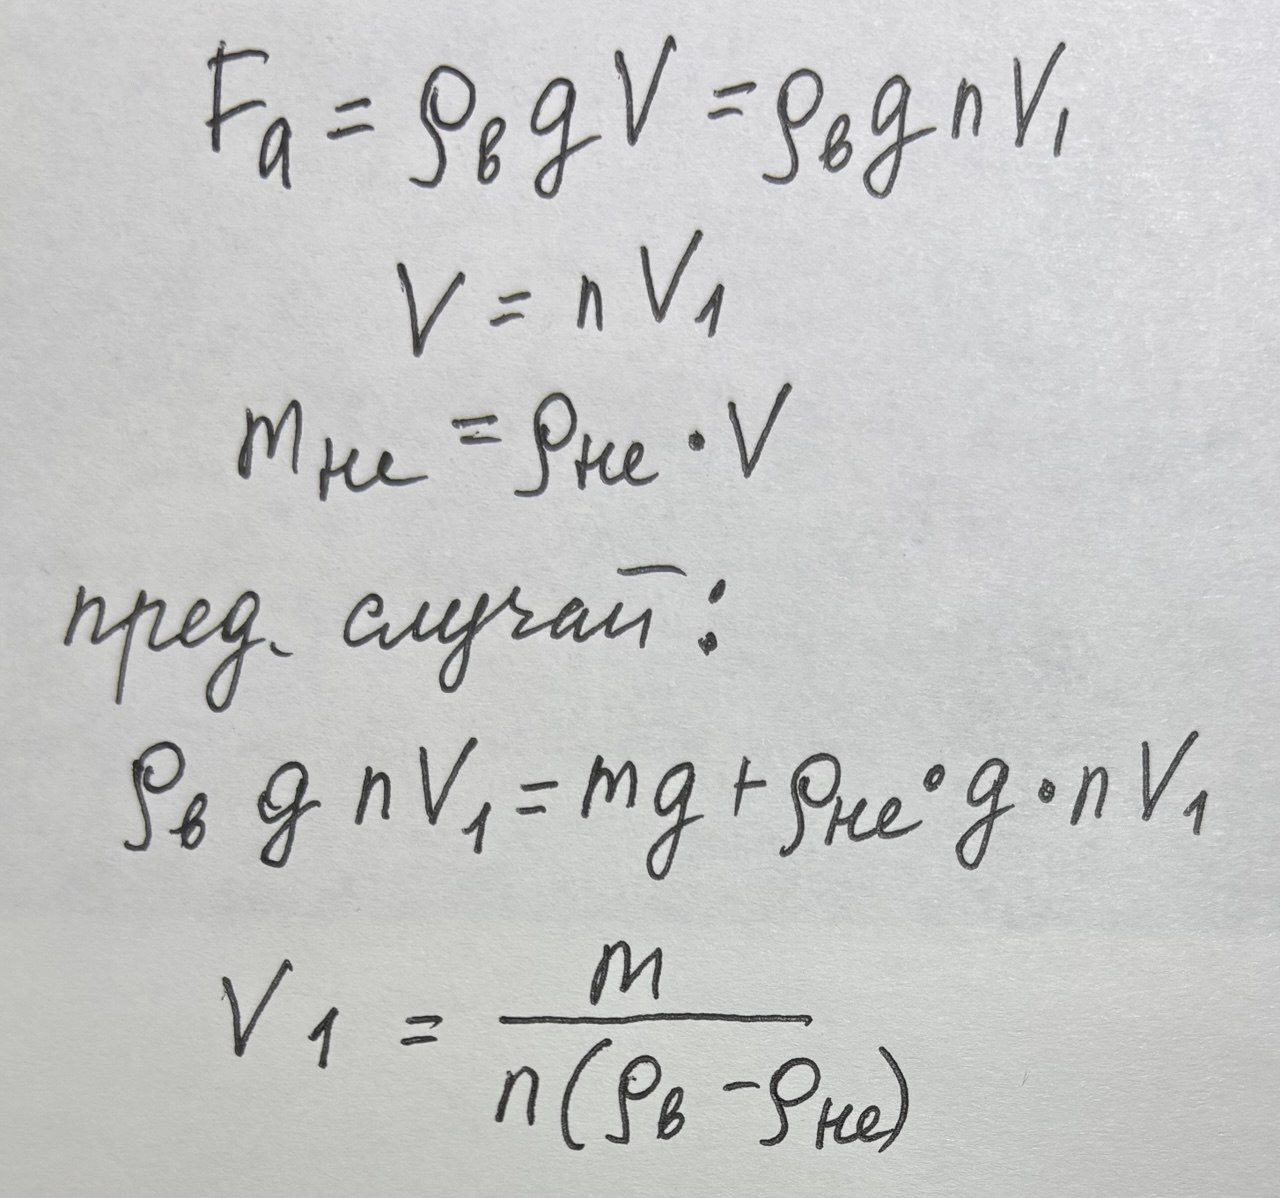 Fₐ = ρ_в g V = ρ_в g n V₁
V = n V₁
m_не = ρ_не · V
пред. случай:
ρ_в g n V₁ = mg + ρ_не · g · n V₁
V₁ = m / n(ρ_в - ρ_не)